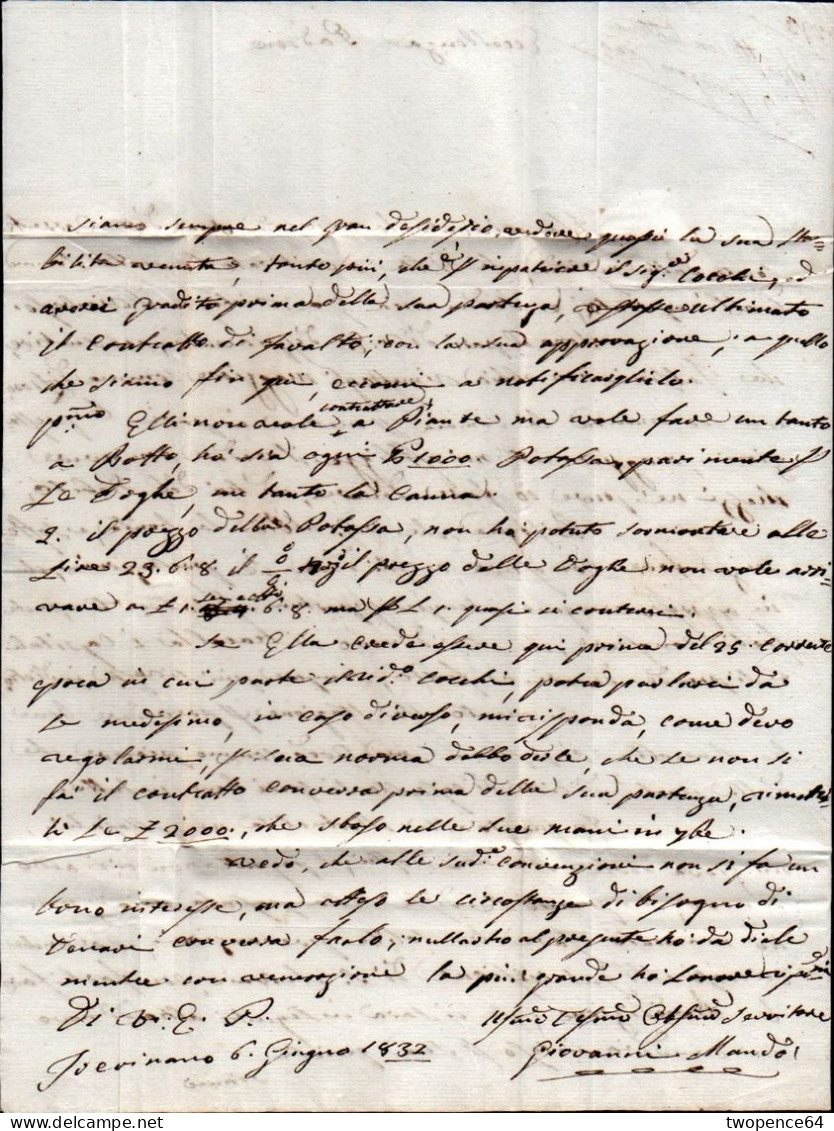 Eccellenza Padrone
siamo sempre nel gran desiderio, vedere quassù la sua sta=
bilita venuta, tanto più, che è p ripatriare il Sig.e Cocchi, ed
avrei gradito prima della sua partenza, restasse ultimato
il contratto di favalto, con la sua approvazione, a quello
che siamo fin qui, eccomi a notificarglielo.
pmo Egli non vole contrattare a Piante ma vole fare un tanto
a Botto, ho sia ogni lb 1000. Potassa, parimente p
Le Doghe, un tanto la Canna.
2. il prezzo della Potassa, non ha potuto sormontare alle
Lire 23. 6. 8. il % il prezzo delle Doghe non vole arri=
vare a £ 1. 6. 8. ma p L 1. quasi si conterci.
se Ella crede essere qui prima del 25. corrente
epoca in cui parte il sud.o Cocchi, potra parlarci da
Le medesimo, in caso diverso, mi risponda, come devo
regolarmi, p sua norma debbo dirle, che se non si
fa il contratto conversa prima della sua partenza, rimetter
li Le £ 2000., che sborsò nelle sue mani in 9bre.
vedo, che alle sud.e convenzioni non si fa un
bono interesse, ma atteso le circostanze di bisogno di
Denari conversa farlo, null'altro al presente ho da dirle
mentre con venerazione la più grande ho L'onore
Di V. E. P.
Servitore
Trevinano 6. Giugno 1832
Giovanni Mandò
twopence64